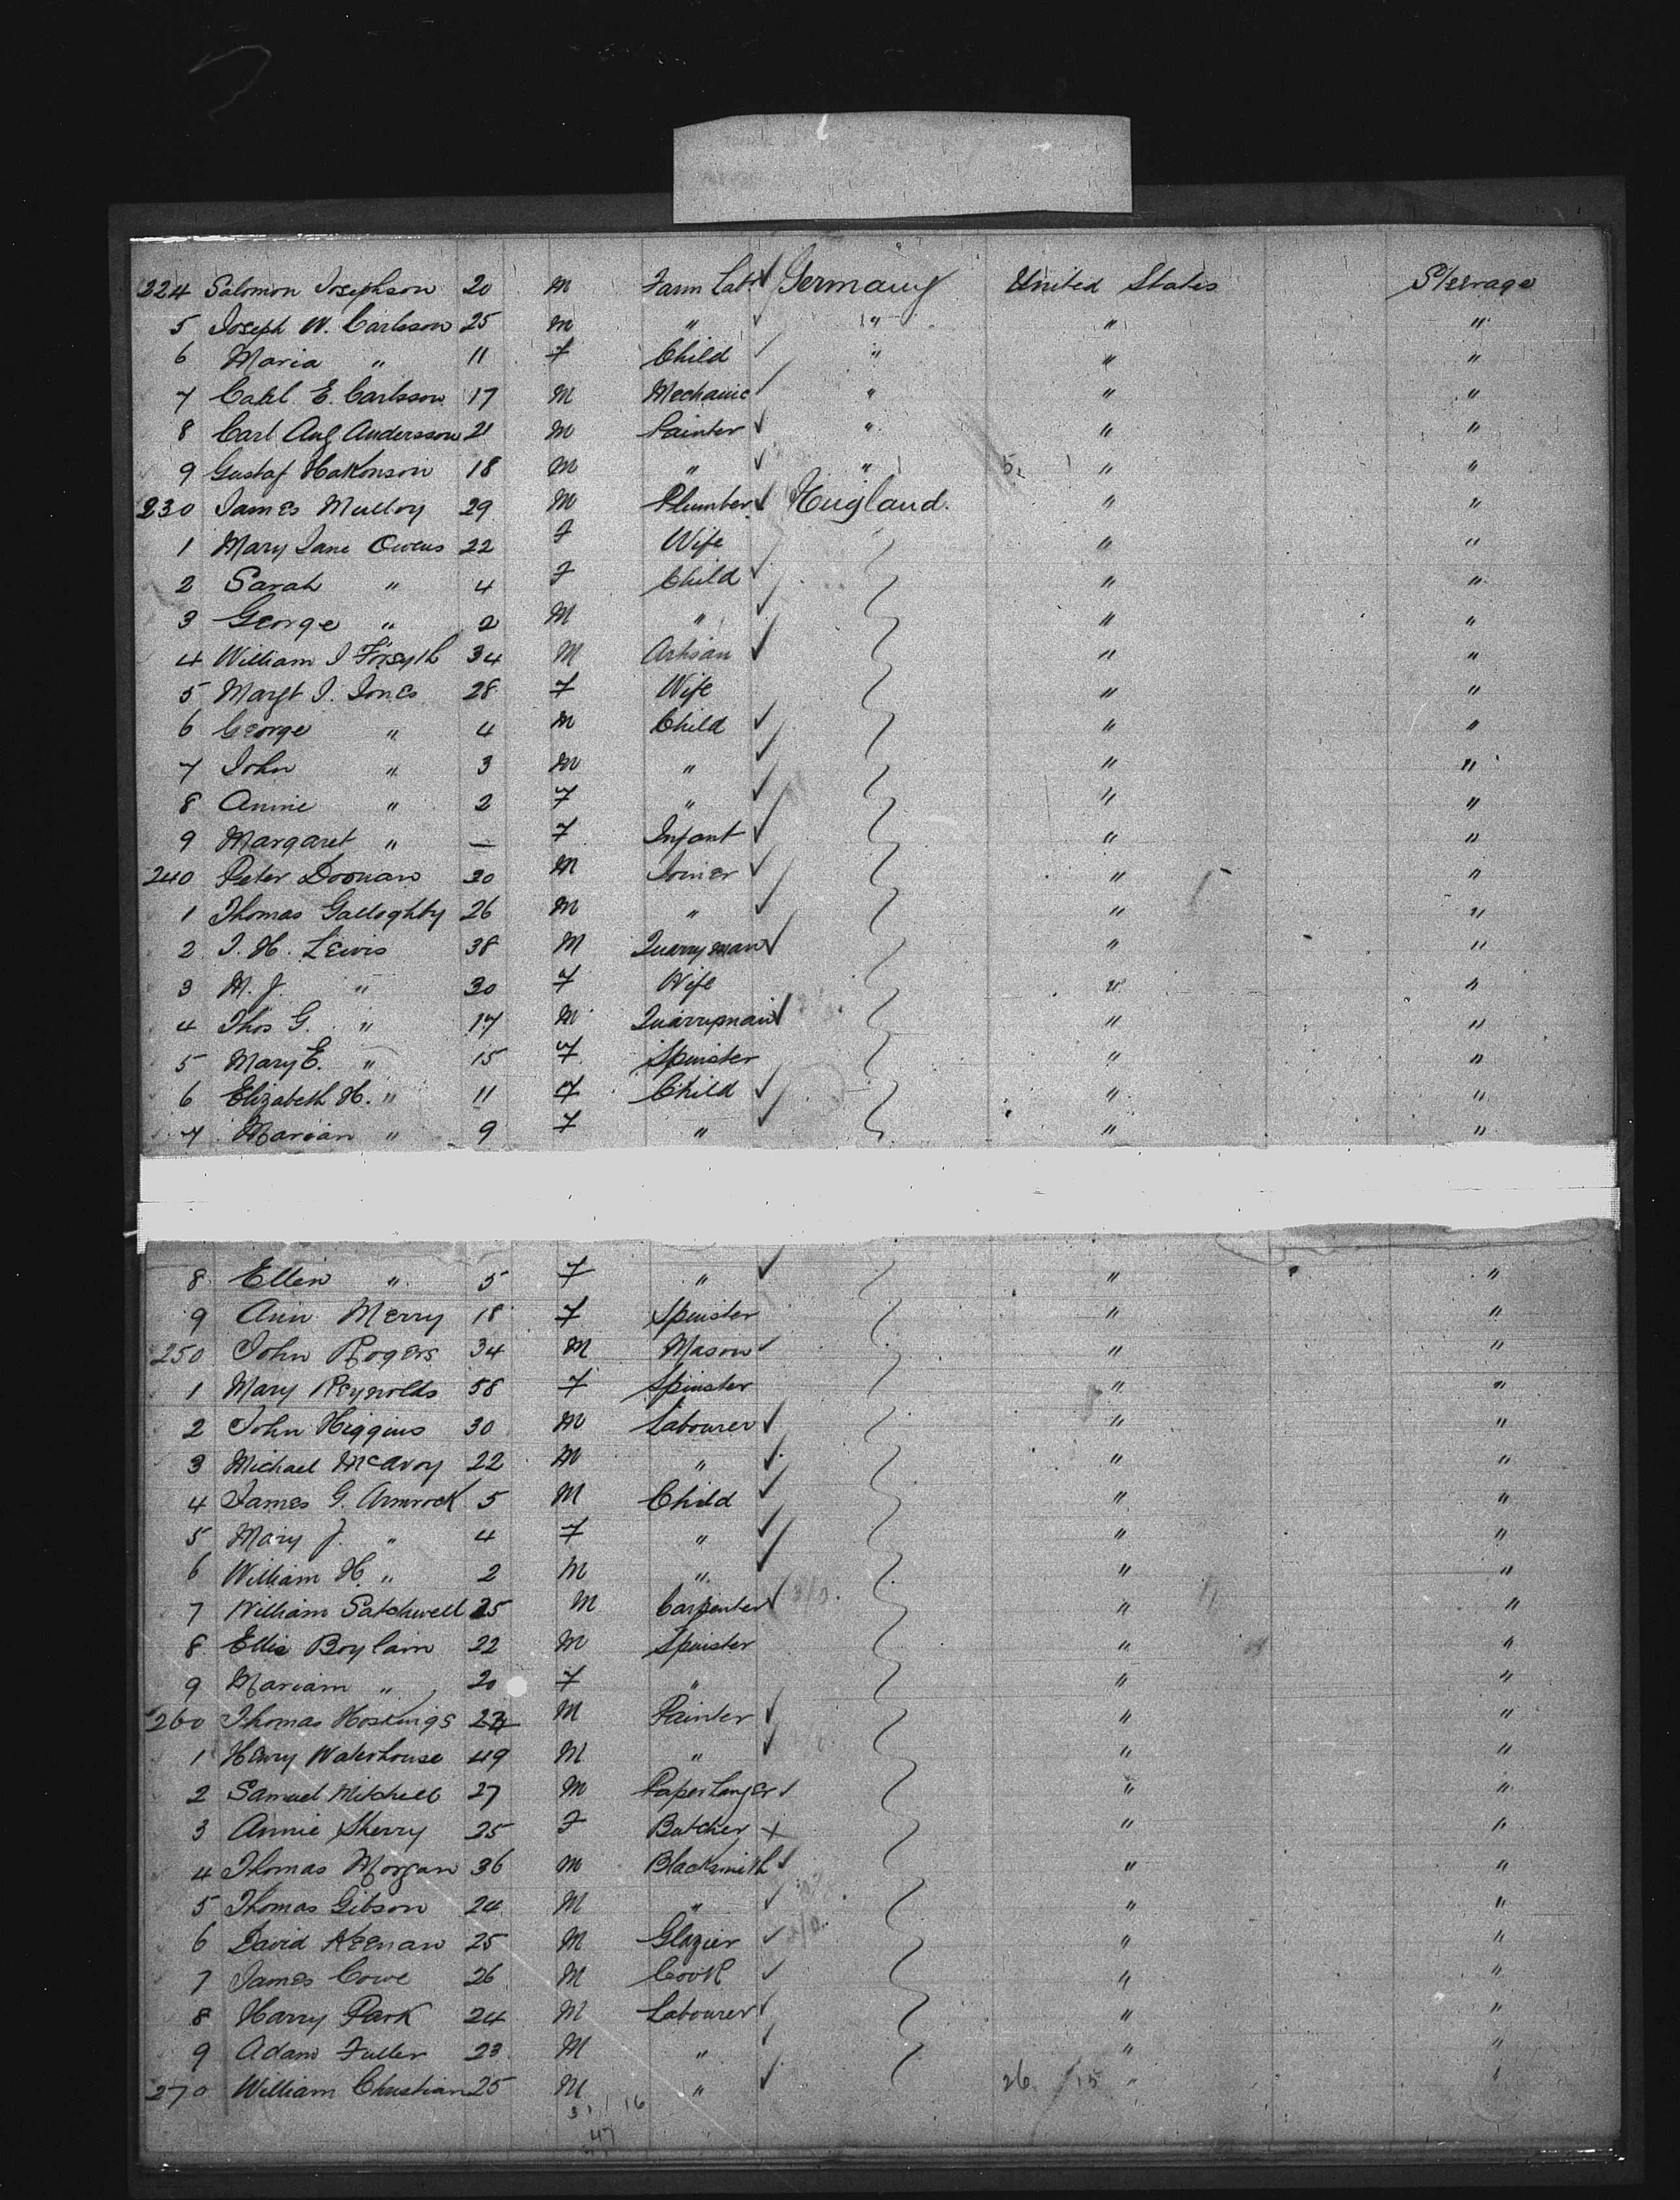 224 Salomon Josephson 20 M Farm Labr Germany United States Steerage
5 Joseph W. Carlsson 25 M " " " "
6 Maria " 11 F Child " " "
7 Cahl. E. Carlsson 17 M Mechanic " " "
8 Carl Aug Andersson 21 M Painter " " "
9 Gustaf Hakonson 18 M " " " "
230 James Mulloy 29 M Plumber England. " "
1 Mary Jane Owens 22 F Wife " "
2 Sarah " 4 F Child " "
3 George " 2 M " " "
4 William J Forsyth 34 M Artisan " "
5 Margt J. Jones 28 F Wife " "
6 George " 4 M Child " "
7 John " 3 M " " "
8 Annie " 2 F " " "
9 Margaret " — F Infant " "
240 Peter Doonan 30 M Joiner " "
1 Thomas Galloghby 26 M " " "
2 J. H. Lewis 38 M Quarryman " "
3 M. J. " 30 F Wife " "
4 Thos G. " 17 M Quarryman " "
5 Mary E. " 15 F Spinster " "
6 Elizabeth H. " 11 F Child " "
7 Marian " 9 F " " "
8 Ellen " 5 F " " "
9 Ann Merry 18 F Spinster " "
250 John Rogers 34 M Mason " "
1 Mary Reynolds 58 F Spinster " "
2 John Higgins 30 M Labourer " "
3 Michael McAvoy 22 M " " "
4 James G. Armrock 5 M Child " "
5 Mary J. " 4 F " " "
6 William H. " 2 M " " "
7 William Satchwell 25 M Carpenter " "
8 Ellie Boylain 22 M Spinster " "
9 Mariam " 20 F " " "
260 Thomas Hoskings M Painter " "
1 Henry Waterhouse 49 M " " "
2 Samuel Mitchell 27 M Paperhanger " "
3 Annie Sherry 25 F Butcher x " "
4 Thomas Morgan 36 M Blacksmith " "
5 Thomas Gibson 24 M " " "
6 David Keenan 25 M Glazier " "
7 James Cowe 26 M Cook " "
8 Harry Park 24 M Labourer " "
9 Adam Fuller 23 M " " "
270 William Christian 25 M " 26 15 "
31 16
47